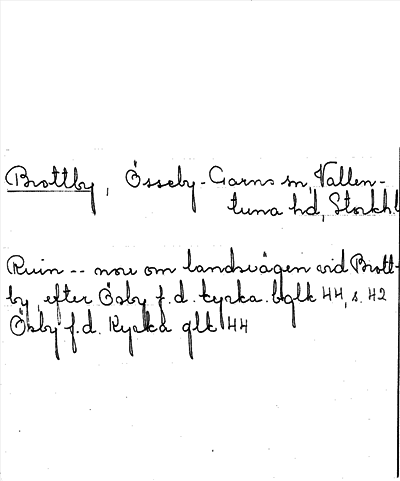 Brottby, Össeby-Garns sn, Vallen-
tuna hd, Stockh.l
Ruin -- norr om landsvägen vid Brott-
by, efter Ösby f.d. kyrka. bglk 44, s. 42
Ösby f.d. Kyrka glk 44